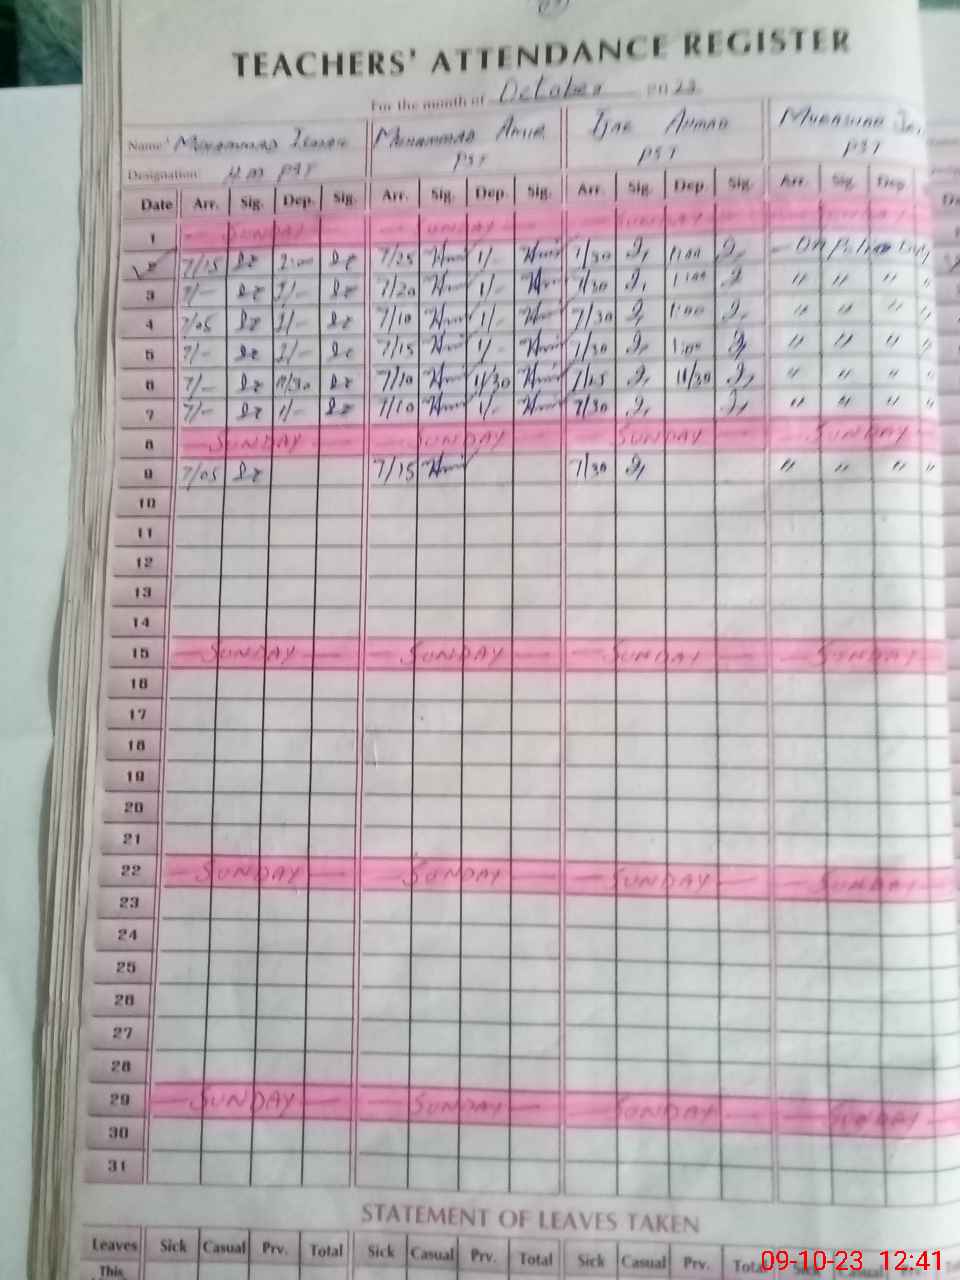 TEACHERS' ATTENDANCE REGISTER
For the month of October 2023
Name Muhammad Muhammad Amir Ijaz Ahmad Mubashar
Designation HM PST PST PST PST
Date Arr. Sig. Dep. Sig. Arr. Sig. Dep. Sig. Arr. Sig. Dep. Sig. Arr. Sig. Dep.
1 SUNDAY SUNDAY SUNDAY SUNDAY
2 7/15 2:00 7/25 1/- 7/30 1:00 On Polio Duty
3 7/- 2/- 7/20 1/- 7/30 1:00 " " " "
4 7/05 2/- 7/10 1/- 7/30 1:00 " " " "
5 7/- 2/- 7/15 1/- 7/30 1:00 " " " "
6 7/- 11/30 7/10 11/30 7/25 11/30 " " " "
7 7/- 1/- 7/10 1/- 7/30 " " " "
8 SUNDAY SUNDAY SUNDAY SUNDAY
9 7/05 7/15 7/30 " " " "
10
11
12
13
14
15 SUNDAY SUNDAY SUNDAY SUNDAY
16
17
18
19
20
21
22 SUNDAY SUNDAY SUNDAY SUNDAY
23
24
25
26
27
28
29 SUNDAY SUNDAY SUNDAY SUNDAY
30
31
STATEMENT OF LEAVES TAKEN
Leaves Sick Casual Prv. Total Sick Casual Prv. Total Sick Casual Prv. Total Sick Casual Prv.
This
09-10-23 12:41